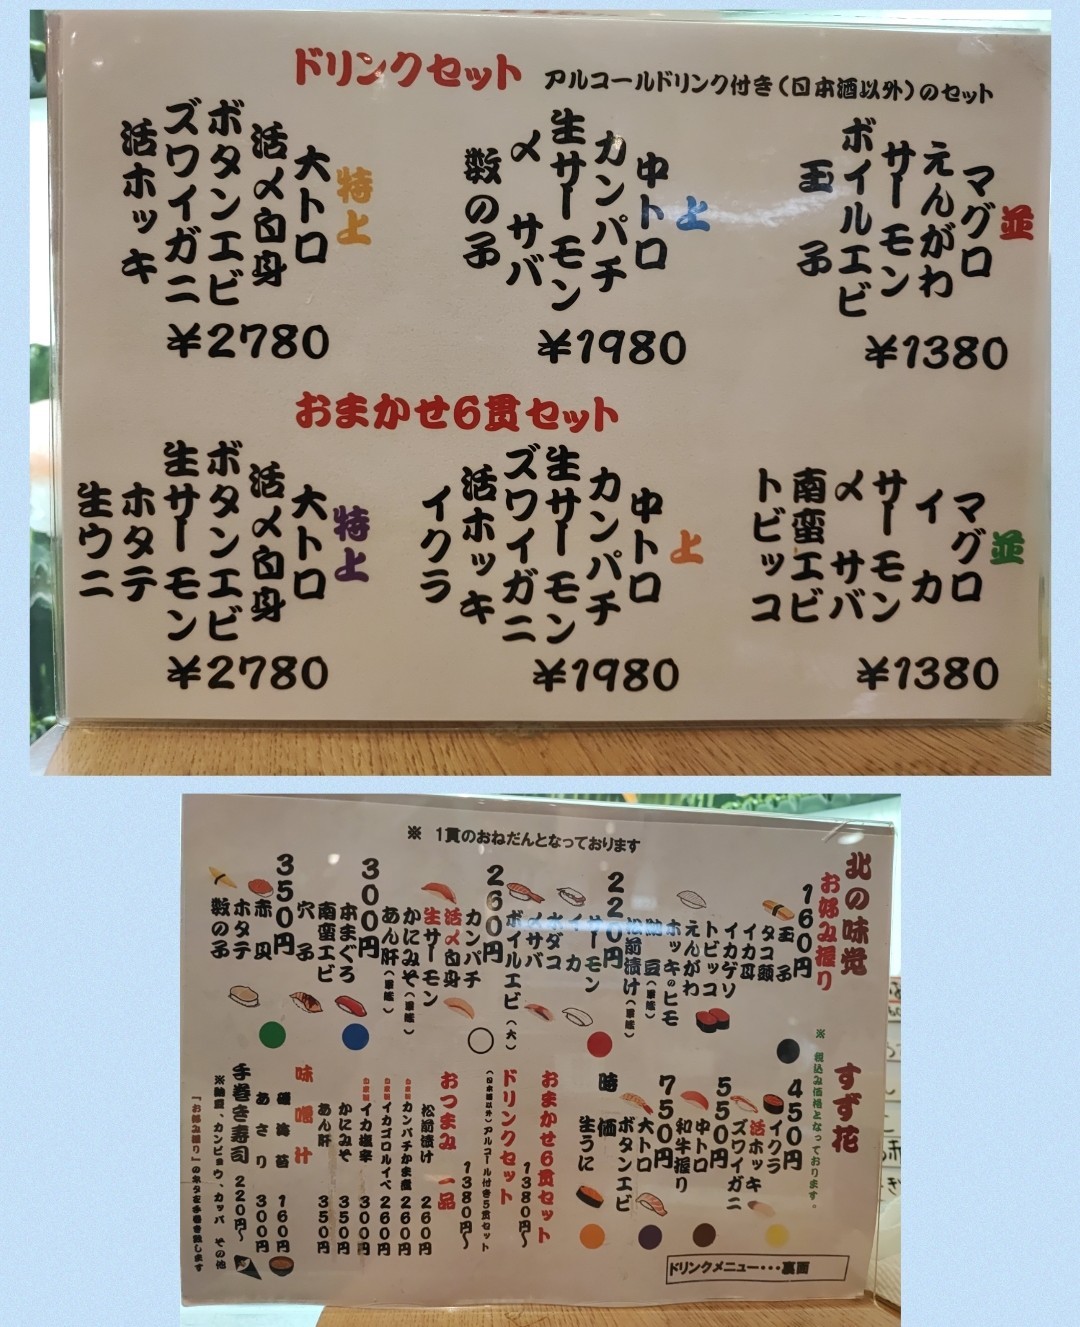 ドリンクセット アルコールドリンク付き(日本酒以外)のセット
並
マグロ
えんがわ
サーモン
ボイルエビ
玉子
¥1380
上
中トロ
カンパチ
生サーモン
〆サバ
数の子
¥1980
特上
大トロ
活〆白身
ボタンエビ
ズワイガニ
活ホッキ
¥2780
おまかせ6貫セット
並
マグロ
イカ
サーモン
〆サバ
南蛮エビ
トビッコ
¥1380
上
中トロ
カンパチ
生サーモン
ズワイガニ
活ホッキ
イクラ
¥1980
特上
大トロ
活〆白身
ボタンエビ
生サーモン
ホタテ
生ウニ
¥2780
※ 1貫のおねだんとなっております
北の味覚 すず花
お好み握り
※ 税込み価格となっております。
160円
玉子
タコ頭
イカ耳
イカゲソ
トビッコ
えんがわ
ホッキのヒモ
納豆(軍艦)
松前漬け(軍艦)
220円
サーモン
イカ
水ダコ
〆サバ
ボイルエビ(大)
260円
カンパチ
活〆白身
生サーモン
かにみそ(軍艦)
あん肝(軍艦)
300円
本まぐろ
南蛮エビ
穴子
350円
赤貝
ホタテ
数の子
450円
イクラ
活ホッキ
ズワイガニ
550円
中トロ
和牛握り
750円
大トロ
ボタンエビ
時価
生うに
おまかせ6貫セット
1380円〜
ドリンクセット
(日本酒以外)アルコール付き5貫セット
1380円〜
おつまみ一品
松前漬け 260円
カンパチかま煮 260円
イカゴロルイベ 260円
イカ塩辛 300円
かにみそ 350円
あん肝 350円
味噌汁
磯海苔 160円
あさり 300円
手巻き寿司 220円〜
※納豆、カンピョウ、カッパ その他
『お好み握り』のネタを手巻き致します
ドリンクメニュー・・・裏面